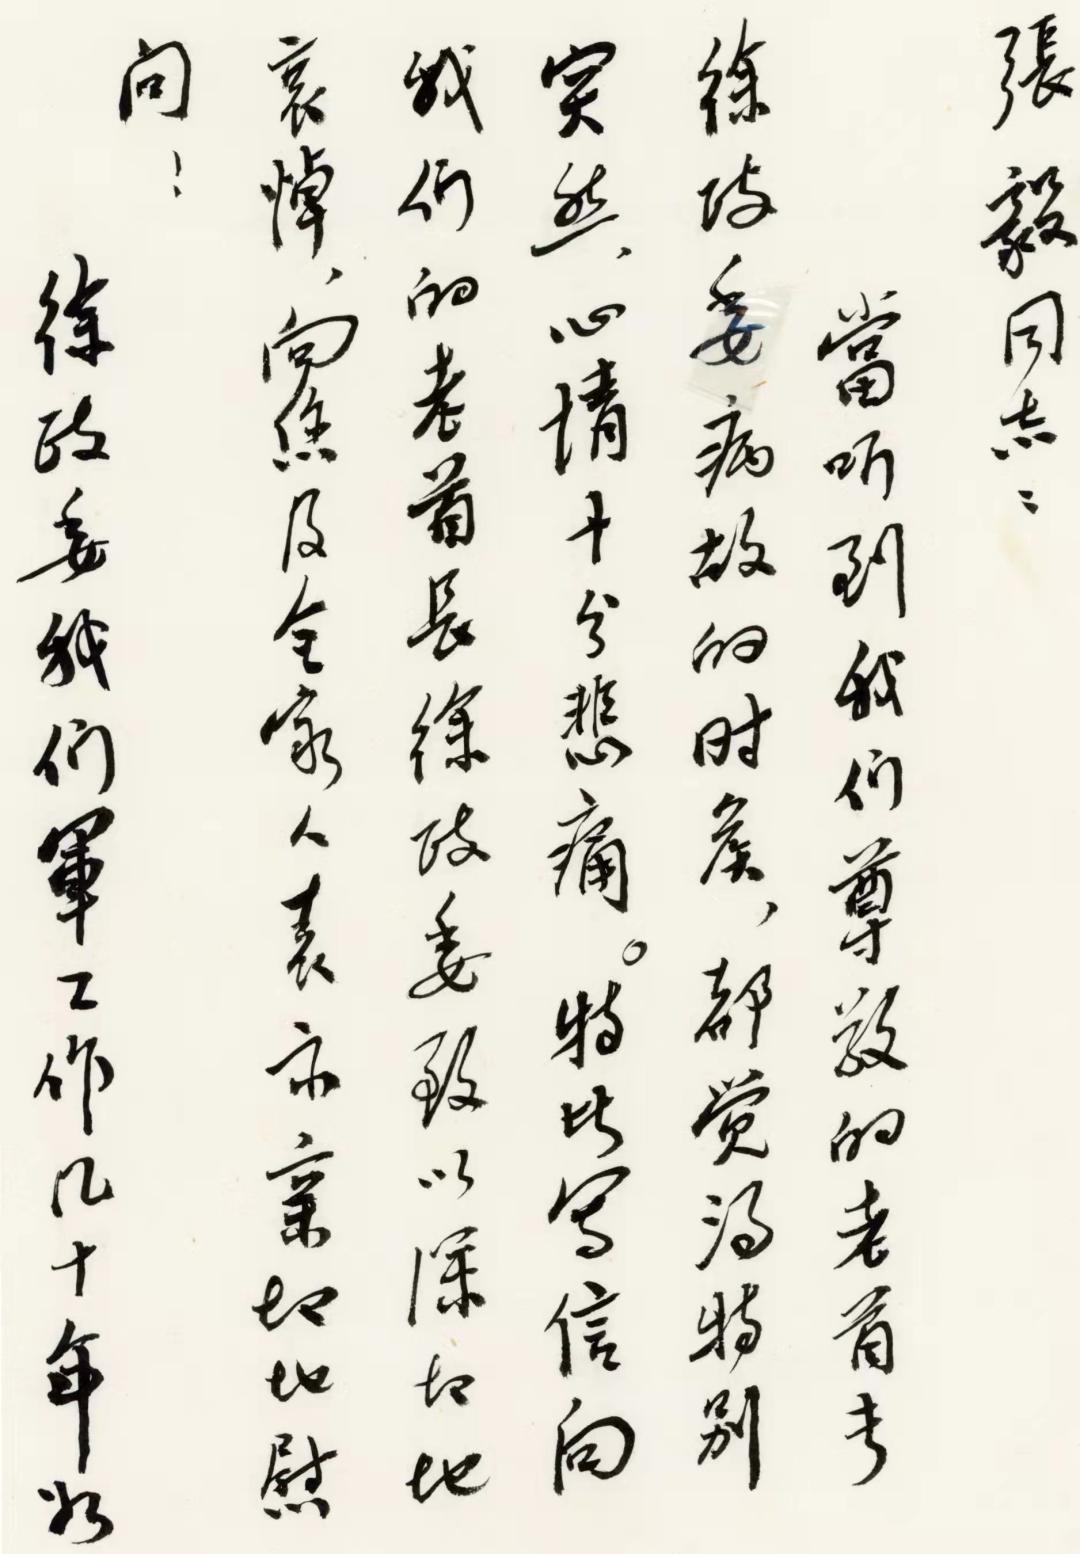 張毅同志：
當听到我们尊敬的老首长
徐政委病故的时候、都觉得特别
突然、心情十分悲痛。特此写信向
我们的老首長徐政委致以深切地
哀悼、向您及全家人表示亲切地慰
问：
徐政委我们軍工作几十年